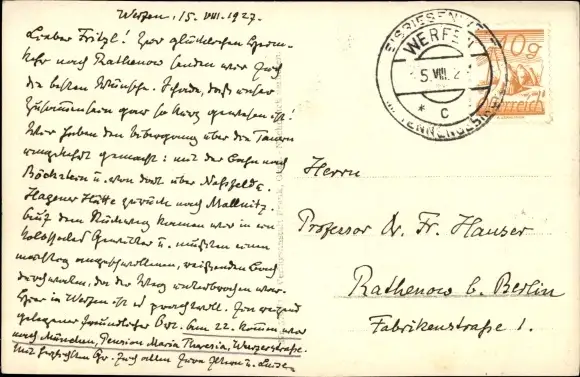 Werfen, 15. VIII. 1927.
Lieber Fritzl! Zur glücklichen Heim-
kehr nach Rathenow senden wir Euch
die besten Wünsche. Schade, daß unser
Zusammensein gar so kurz gewesen ist!
Wir haben den Übergang über die Tauern
umgekehrt gemacht: mit der Bahn nach
Böckstein u. von dort über Naßfeld u.
Hagener Hütte zurück nach Mallnitz.
Auf dem Rückweg kamen wir in ein
Gewitter u. mußten einen
mächtig angeschwollenen, reißenden Bach
durchwaten, da der Weg unterbrochen war.
Hier in Werfen ist es prachtvoll.
gelegener freundlicher Ort. Am 22. kommen wir
nach München, Pension Maria Theresia, Wurzerstraße.
Mit herzlichsten Gr. Euch allen Eure u. Luise
EISRIESENWELT
WERFEN
15.VIII.27
* C
IM TENNENGEBIRGE
10g
Österreich
Herrn
Professor Dr. Fr. Hauser
Rathenow b. Berlin
Fabrikenstraße 1.